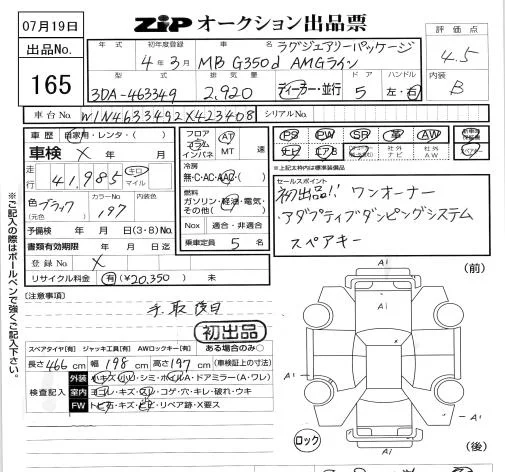 07月19日
ZIP オークション出品票
出品No.
165
年式
初年度登録
4年3月
車名
ラグジュアリーパッケージ
MB G350d AMGライン
評価点
4.5
型式
3DA-463349
排気量
2,920
ディーラー・並行
ドア
5
ハンドル
左・右
内装
B
車台No.
W1N4633492X423408
シリアルNo.
車歴 自家用・レンタ・( )
車検 X 年 月
走行 41,985 キロ マイル
色 ブラック
(元色)
カラーNo.
197
予備検 年 月 日(3・8)No.
書類有効期限 年 月 日迄
登録No. X
リサイクル料金 有(¥20,350) 未
フロア コラム インパネ
AT
MT 速
冷房
無・C・AC・AAC・( )
燃料
ガソリン・軽油・電気・その他( )
Nox 適合・非適合
乗車定員 5 名
PS PW SR 革 AW
ナビ エアB 社外ナビ 社外AW
※上記太枠内は標準装備品
セールスポイント
初出品!! ワンオーナー
アダプティブダンピングシステム
スペアキー
※ご記入の際はボールペンで強くご記入下さい。
[注意事項]
手取後日
初出品
スペアタイヤ[有] ジャッキ工具[有] AWロックキー[有] ある場合のみ○
長さ 466 cm 幅 198 cm 高さ 197 cm (車検証上の寸法)
検査記入
外装 小キズ・小凹・シミ・ホイルA・ドアミラー(A・ワレ)
室内 ヨゴレ・キズ・スレ・コゲ・穴・キレ・破れ・ウキ
FW トビ石・キズ・ヒビ・リペア跡・X要ス
(前)
A1
A1
A1
A1
A1
A1
ロック
(後)